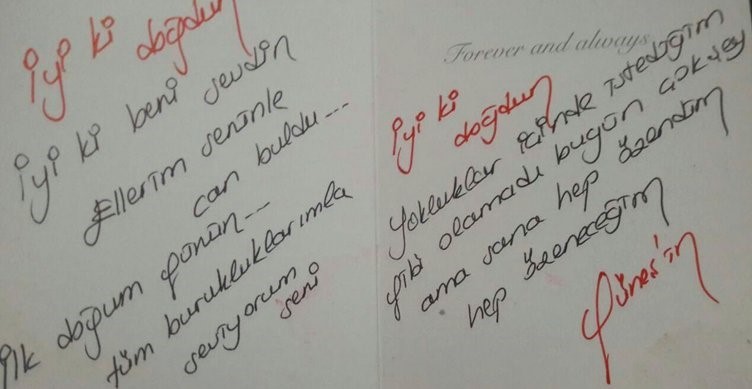 İyi ki doğdun
İyi ki beni sevdin
Ellerim seninle
can buldu...
ilk doğum günün...
tüm burukluklarımla
seviyorum
seni
Forever and always
İyi ki
doğdun
Yokluklar içinde istediğim
gibi olamadı bugün çok şey
ama sana hep özendim
hep özeneceğim
Güneş'in